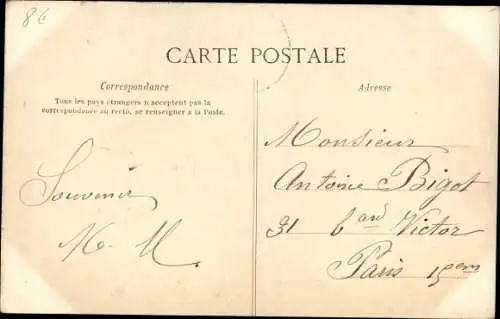 8 €
CARTE POSTALE
Correspondance
Tous les pays étrangers n'acceptent pas la
correspondance au recto, se renseigner à la Poste.
Adresse
Souvenir
M. M.
Monsieur
Antoine Bigot
31 Bard Victor
Paris 15em